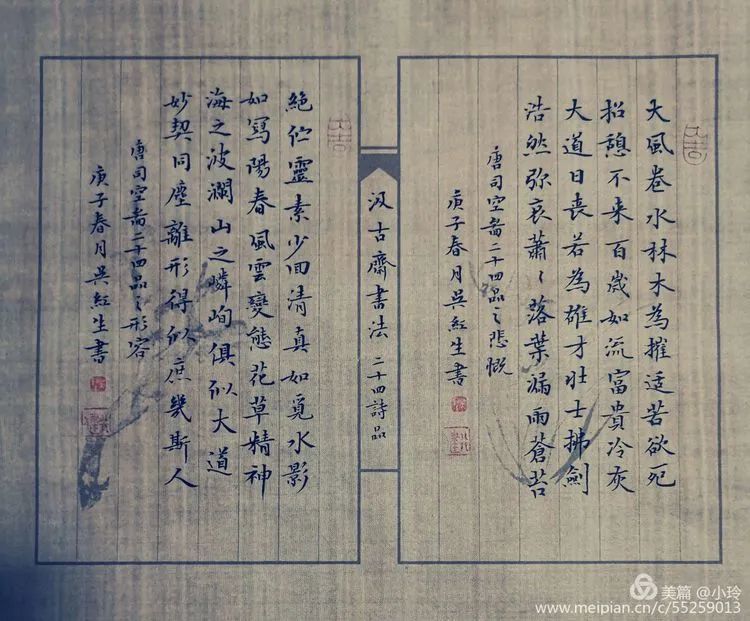 大風卷水林木為摧适苦欲死
招憩不来百歲如流富貴冷灰
大道日喪若為雄才壮士拂劍
浩然弥哀蕭〻落葉漏雨蒼苔
唐司空啚二十四品之悲慨
庚子春月吴紅生書
汲古齋書法 二十四詩品
絕佇靈素少回清真如覓水影
如寫陽春風雲變態花草精神
海之波瀾山之嶙峋俱似大道
妙契同塵離形得似庶幾斯人
唐司空啚二十四品之形容
庚子春月吴紅生書
美篇 @小玲
www.meipian.cn/c/55259013